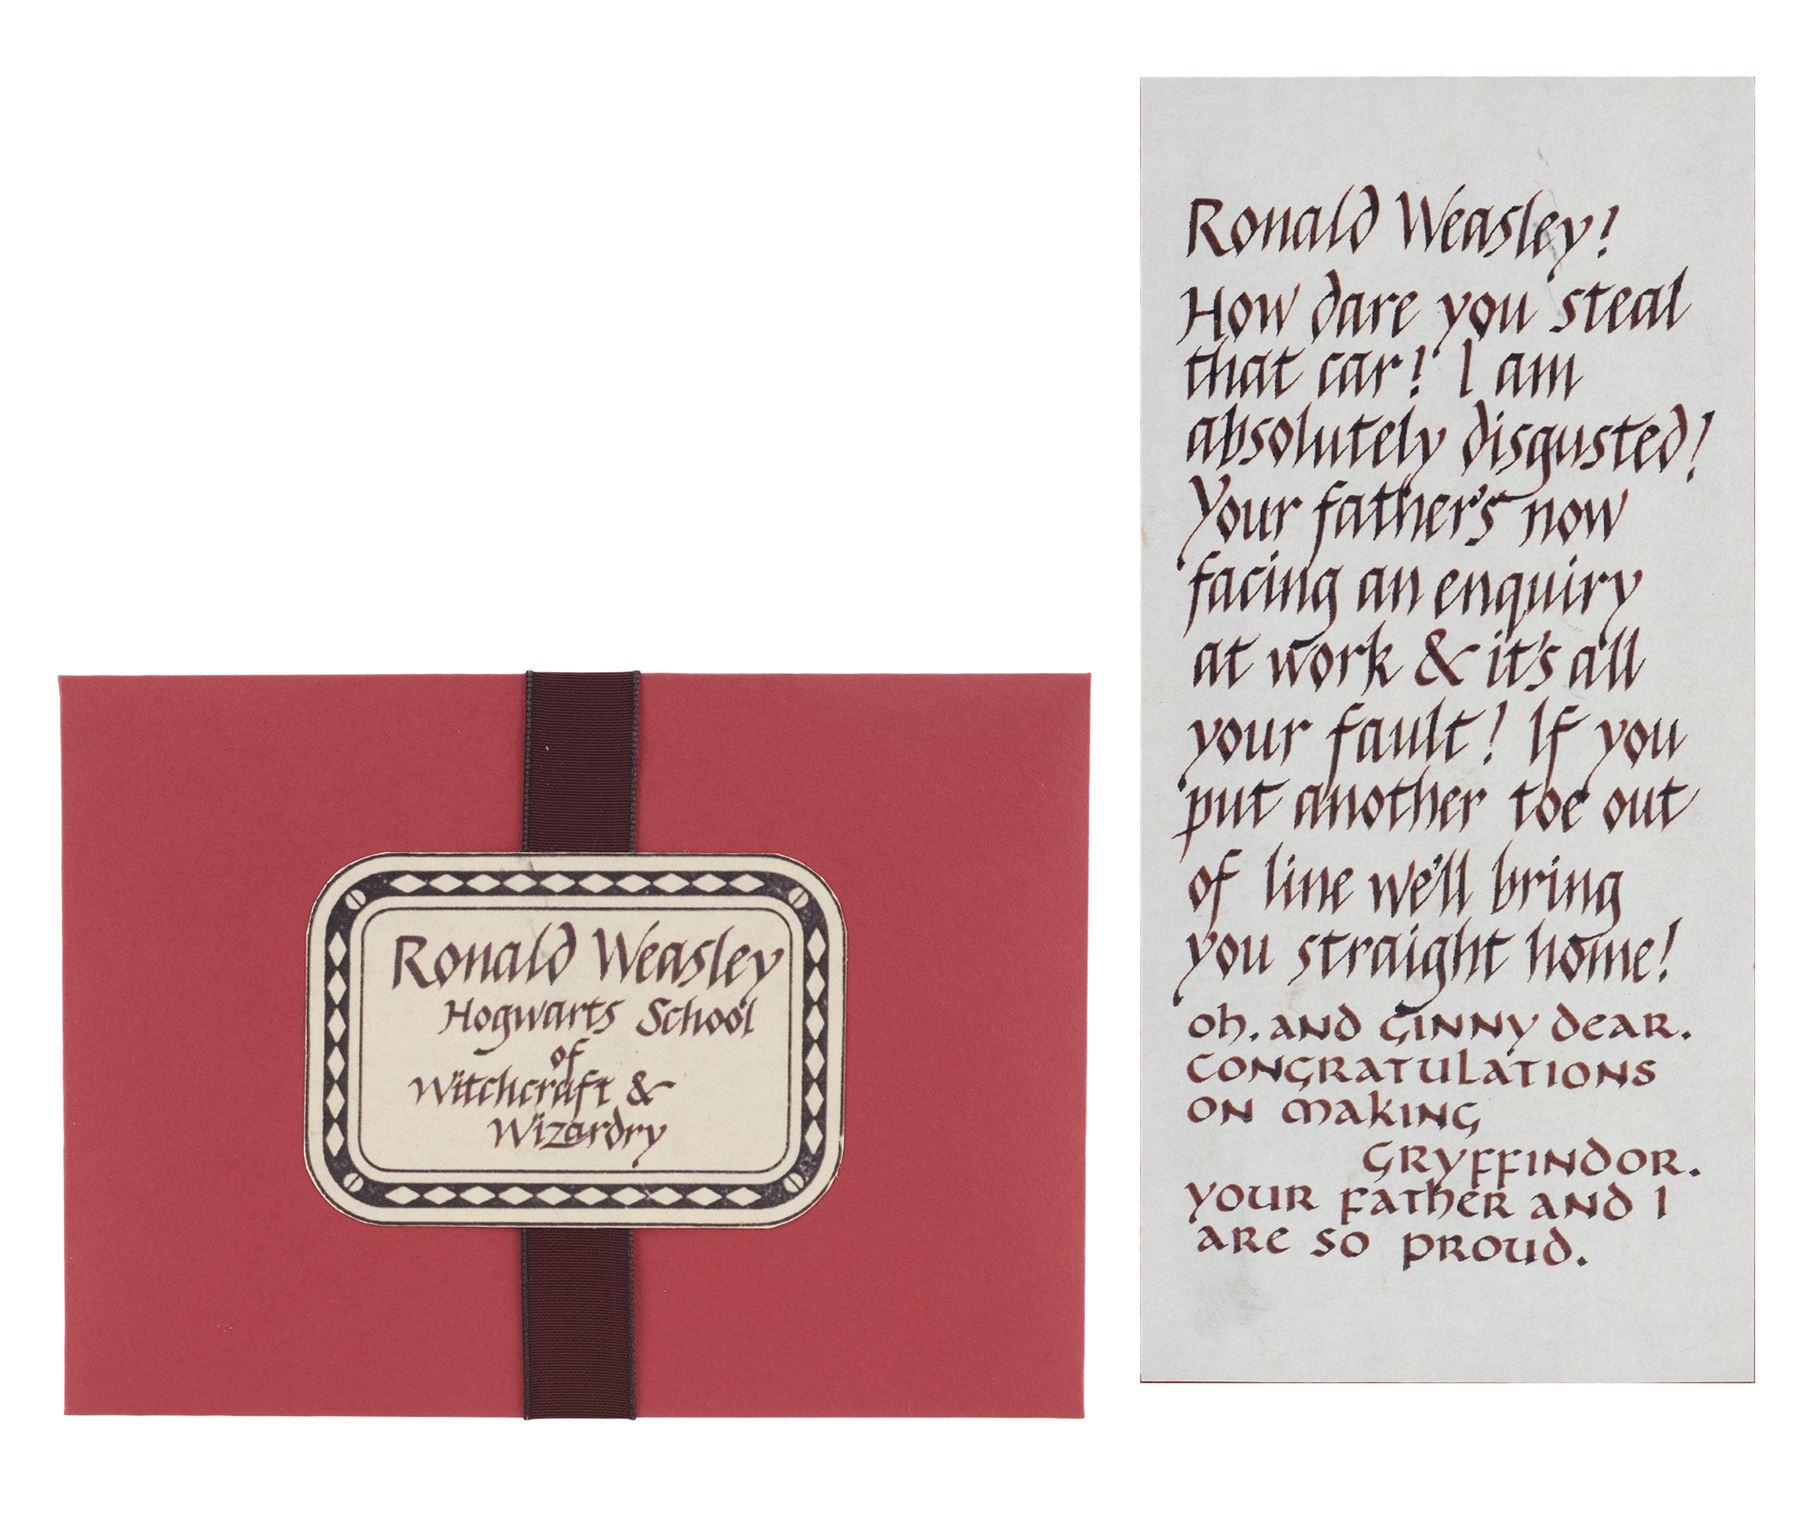 Ronald Weasley
Hogwarts School
of
Witchcraft &
Wizardry
Ronald Weasley!
How dare you steal
that car! I am
absolutely disgusted!
Your father's now
facing an enquiry
at work & it's all
your fault! If you
put another toe out
of line we'll bring
you straight home!
Oh, and Ginny dear.
Congratulations
on making
Gryffindor.
Your father and I
are so proud.